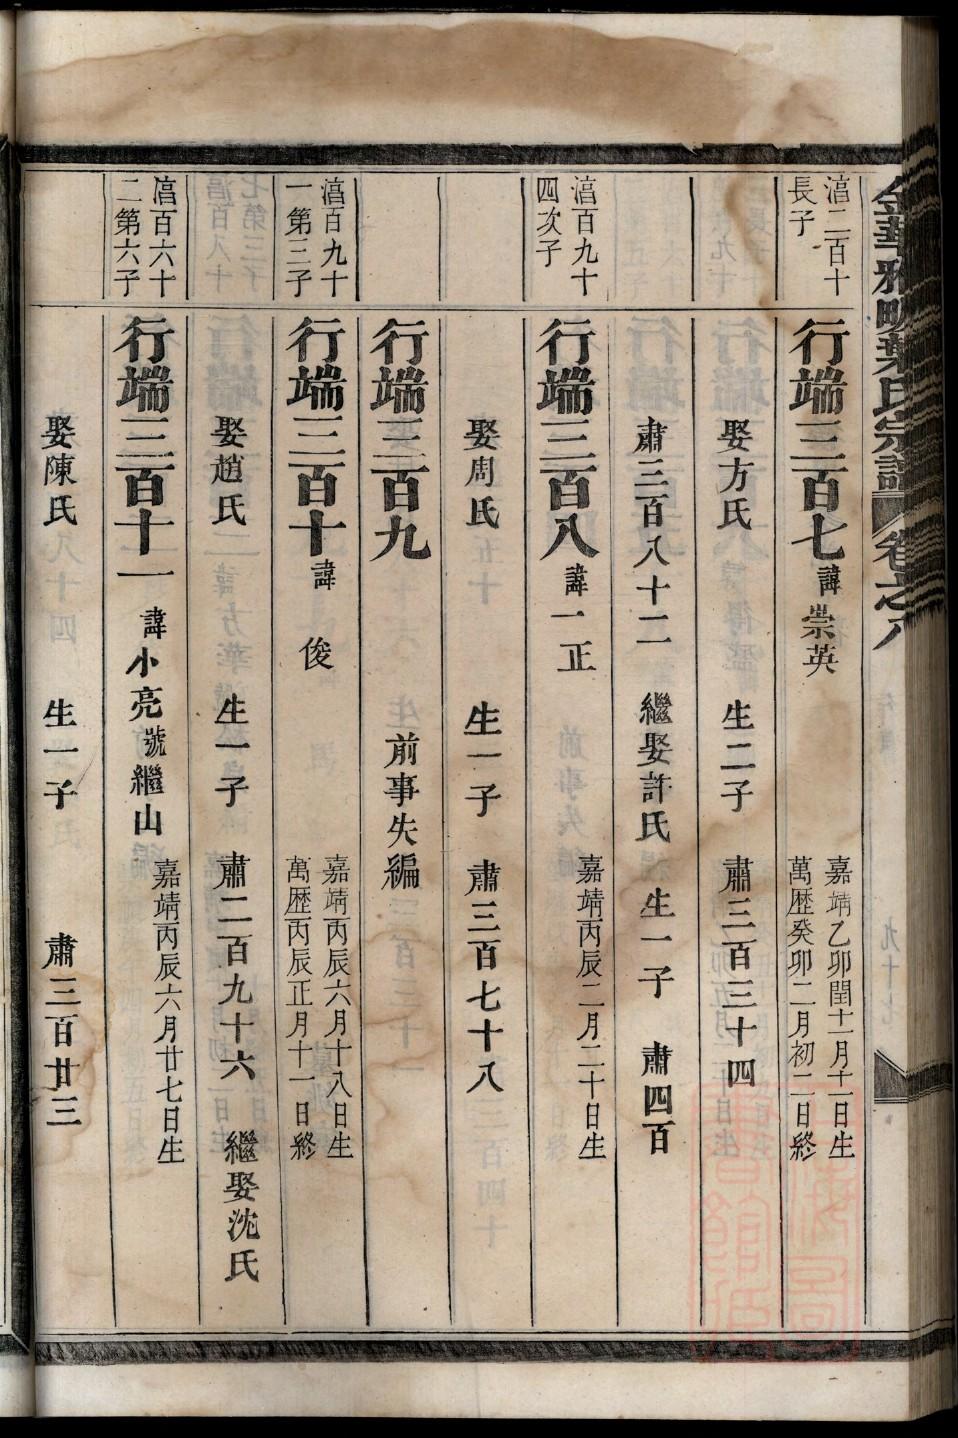 金華雅畈葉氏宗譜 卷之八
湻二百十
長子
行端三百七 諱崇英 嘉靖乙卯閏十一月十一日生
萬歷癸卯二月初二日終
娶方氏 生二子 肅三百三十四
肅三百八十二 繼娶許氏 生一子 肅四百
湻百九十
四次子
行端三百八 諱一正 嘉靖丙辰二月二十日生
娶周氏 生一子 肅三百七十八
行端三百九 前事失編
湻百九十
一第三子
行端三百十 諱俊 嘉靖丙辰六月十八日生
萬歷丙辰正月十一日終
娶趙氏 生一子 肅二百九十六 繼娶沈氏
湻百六十
二第六子
行端三百十一 諱小亮 號繼山 嘉靖丙辰六月廿七日生
娶陳氏 生一子 肅三百廿三